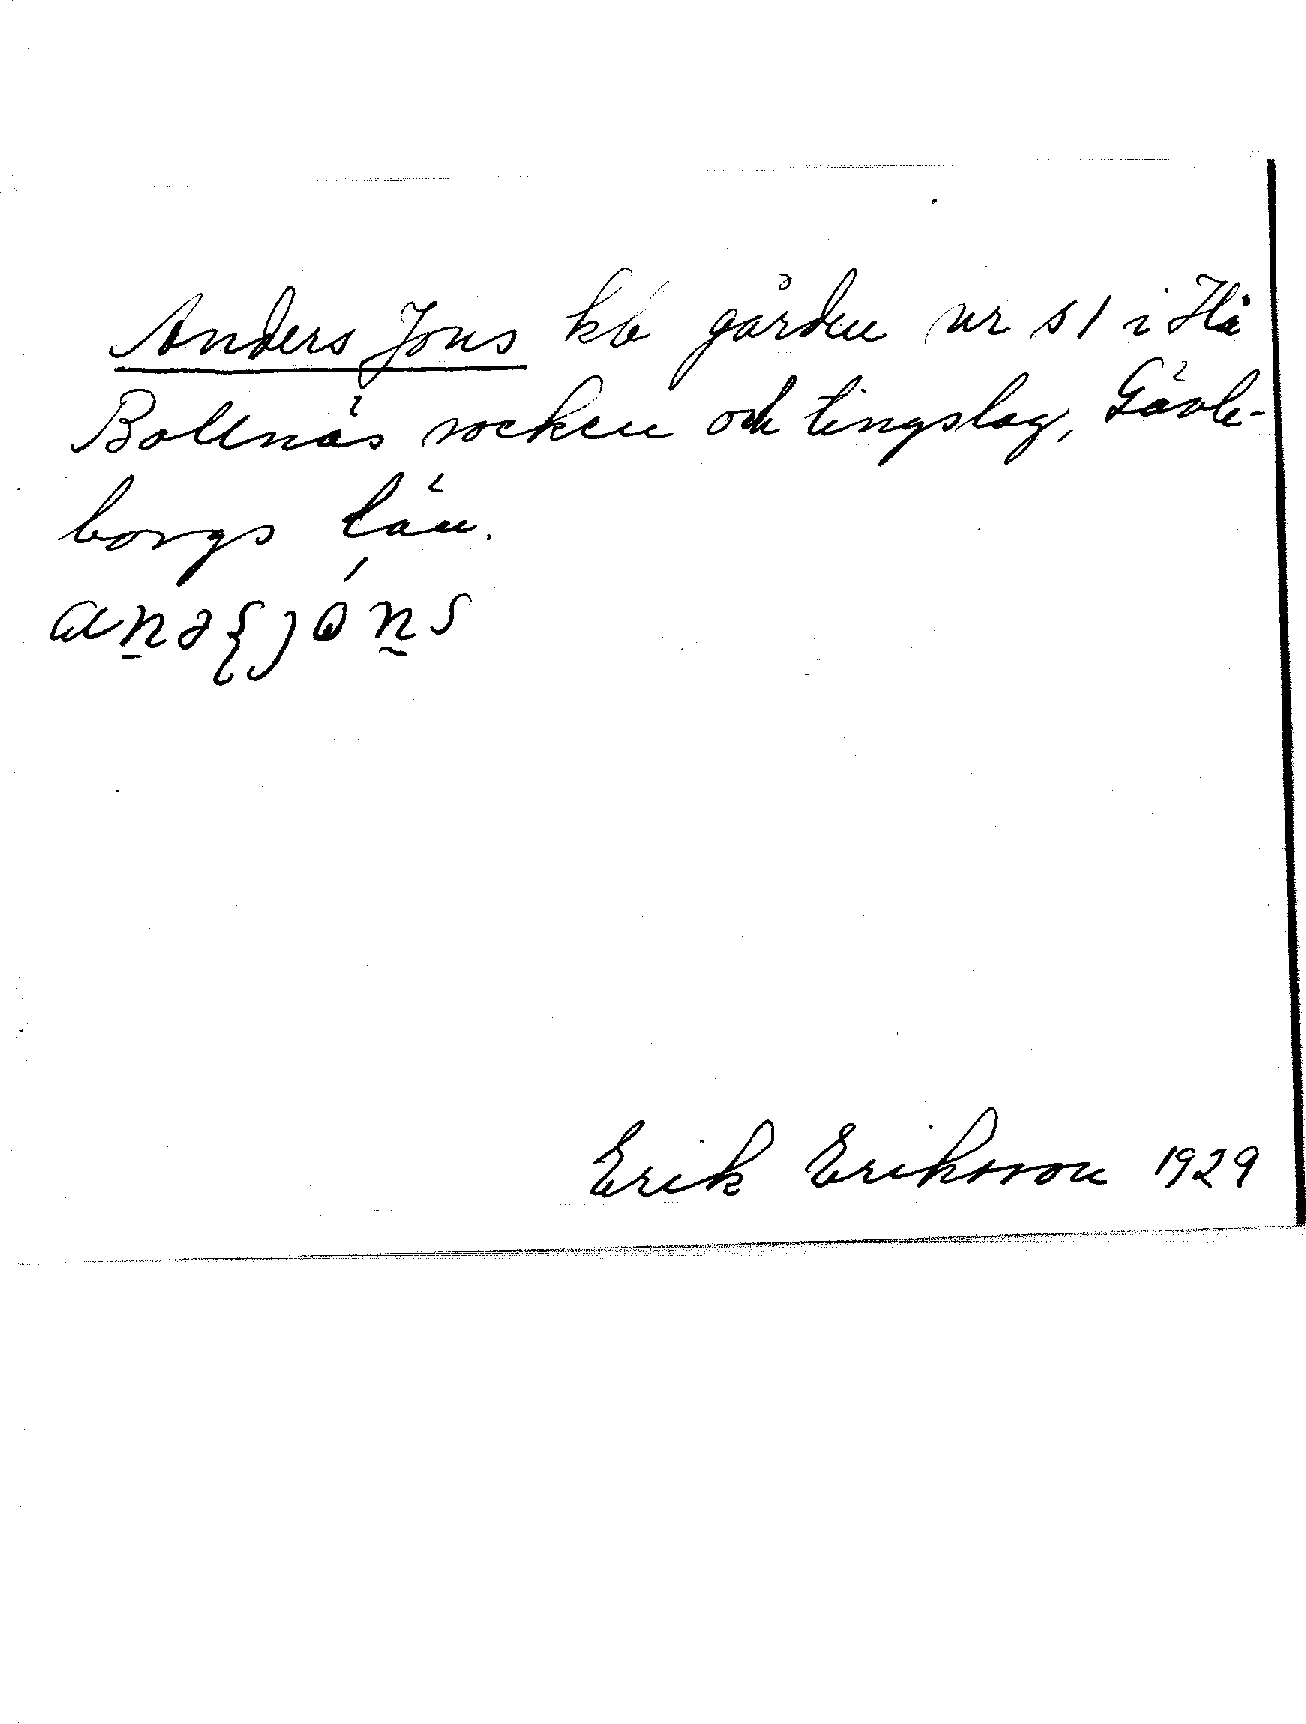 Anders Jons kb gården nr 51 i Hå
Bollnäs socken och tingslag, Gävle-
borgs län.
Erik Eriksson 1929